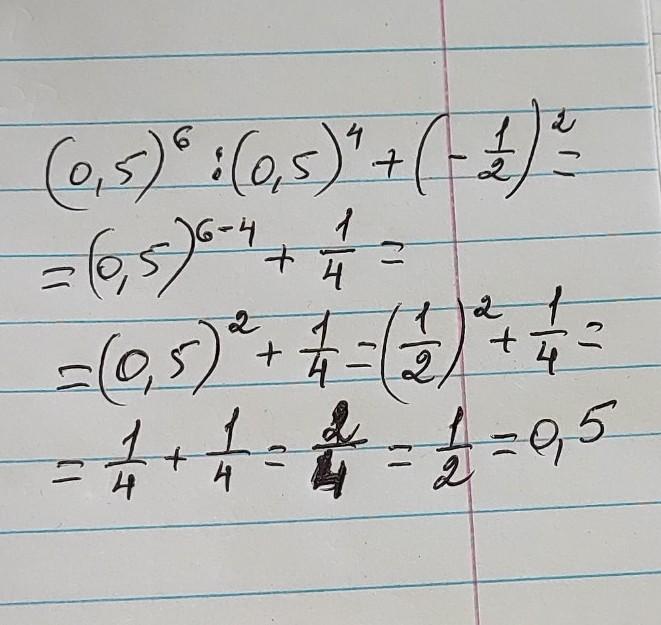 (0,5)⁶ : (0,5)⁴ + (- 1/2)² =
= (0,5)⁶⁻⁴ + 1/4 =
= (0,5)² + 1/4 = (1/2)² + 1/4 =
= 1/4 + 1/4 = 2/4 = 1/2 = 0,5